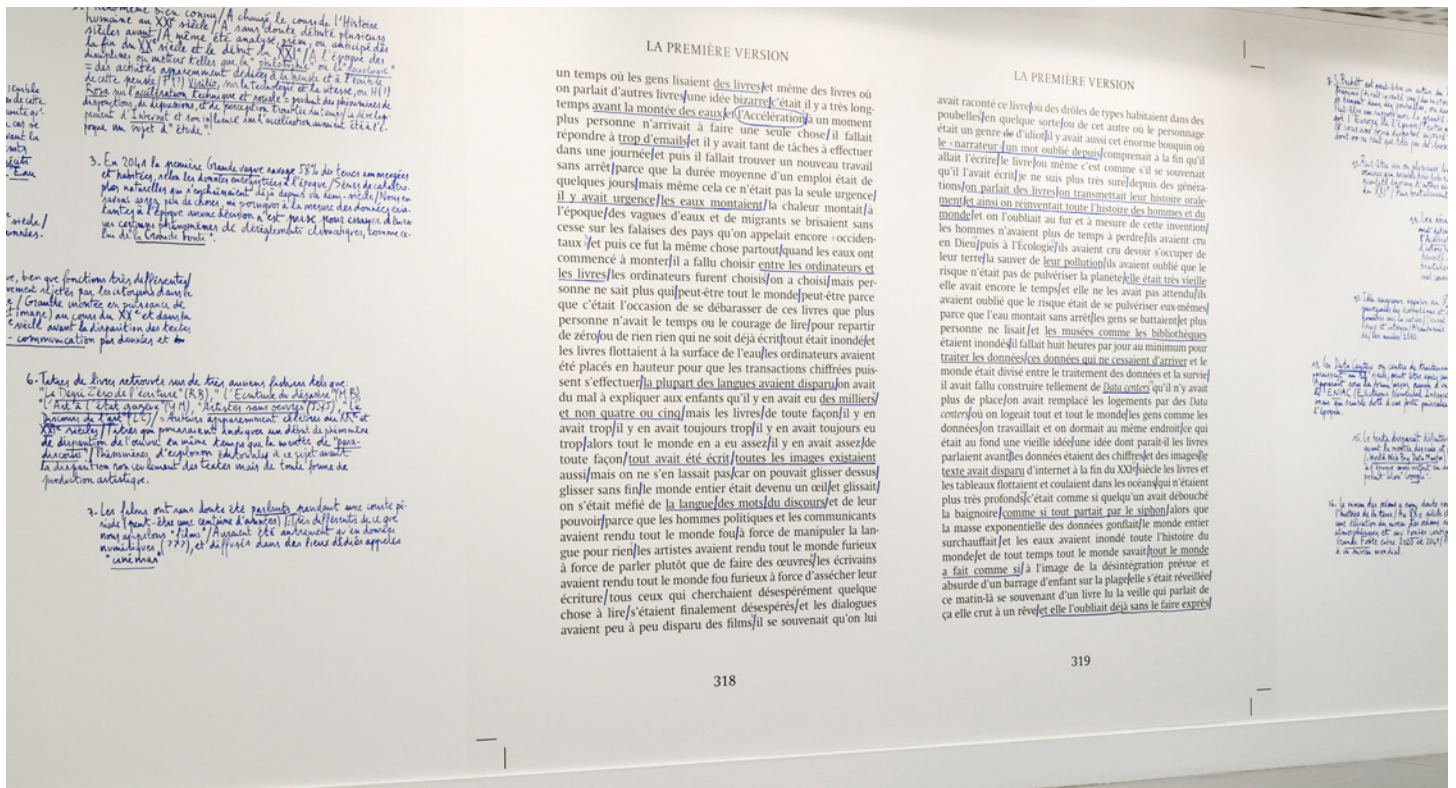 humaine au XXIe siècle/A changé le cours de l'Histoire
siècles avant/A sans doute débuté plusieurs
la fin du XXe siècle et le début du XXIe/A l'époque des
disciplines ou métiers telles que la "philosophie" ou la "sociologie"
= des activités apparemment dédiées à la pensée et à l'écriture
de cette pensée/P(?) Virilio, sur la technologie et la vitesse, ou H(?)
Rosa sur l'accélération technique et sociale = perdant des phénomènes de
3. En 2041 la première Grande vague ravage 58% des terres immergées
et habitées, selon les données enregistrées à l'époque/Séries de catastro-
phes naturelles qui s'enchaînaient déjà depuis un demi-siècle/Nous en
savons assez peu de choses, ni pourquoi à la mesure des données exis-
tantes à l'époque aucune décision n'est prise pour essayer d'enra-
yer certains phénomènes de dérèglements climatiques, comme ce-
lui de la Grande Fonte".
siècle/
données.
ve, bien que fonctions très différentes/
vement rejetés par les citoyens dans ce
/ Grande montée en puissance de
t image) au cours du XXe et dans la
siècle avant la disparition des textes
- communication par données et
6. Titres de livres retrouvés sur de très anciens fichiers tels que:
"Le Degré Zéro de l'écriture" (RB), "L'Ecriture du désastre" (MB),
"L'Art à l'état gazeux" (YM), "Artistes sans oeuvres" (JYJ), "Le
discours de l'art" (LC)/= Auteurs apparemment célèbres au XXe et
XXIe siècles/Titres qui pourraient indiquer un début de phénomène
de disparition de l'œuvre en même temps que la montée de "para-
discours"/Phénomènes d'explosion éditoriale à ce sujet avant
la disparition non seulement des textes mais de toute forme de
production artistique.
7. Les films ont sans doute été parlants pendant une courte pé-
riode (peut-être une centaine d'années)/Très différents de ce que
nous appelons "films"/Auraient été autrement qu'en données
numériques (???), et diffusés dans des lieux dédiés appelés
"cinémas"
LA PREMIÈRE VERSION
un temps où les gens lisaient des livres/et même des livres où
on parlait d'autres livres/une idée bizarre/c'était il y a très long-
temps avant la montée des eaux/et l'Accélération/à un moment
plus personne n'arrivait à faire une seule chose/il fallait
répondre à trop d'emails/et il y avait tant de tâches à effectuer
dans une journée/et puis il fallait trouver un nouveau travail
sans arrêt/parce que la durée moyenne d'un emploi était de
quelques jours/mais même cela ce n'était pas la seule urgence/
il y avait urgence/les eaux montaient/la chaleur montait/à
l'époque/des vagues d'eaux et de migrants se brisaient sans
cesse sur les falaises des pays qu'on appelait encore «occiden-
taux»/et puis ce fut la même chose partout/quand les eaux ont
commencé à monter/il a fallu choisir entre les ordinateurs et
les livres/les ordinateurs furent choisis/on a choisi/mais per-
sonne ne sait plus qui/peut-être tout le monde/peut-être parce
que c'était l'occasion de se débarasser de ces livres que plus
personne n'avait le temps ou le courage de lire/pour repartir
de zéro/ou de rien rien qui ne soit déjà écrit/tout était inondé/et
les livres flottaient à la surface de l'eau/les ordinateurs avaient
été placés en hauteur pour que les transactions chiffrées puis-
sent s'effectuer/la plupart des langues avaient disparu/on avait
du mal à expliquer aux enfants qu'il y en avait eu des milliers/
et non quatre ou cinq/mais les livres/de toute façon/il y en
avait trop/il y en avait toujours trop/il y en avait toujours eu
trop/alors tout le monde en a eu assez/il y en avait assez/de
toute façon/tout avait été écrit/toutes les images existaient
aussi/mais on ne s'en lassait pas/car on pouvait glisser dessus/
glisser sans fin/le monde entier était devenu un œil/et glissait/
on s'était méfié de la langue/des mots/du discours/et de leur
pouvoir/parce que les hommes politiques et les communicants
avaient rendu tout le monde fou/à force de manipuler la lan-
gue pour rien/les artistes avaient rendu tout le monde furieux
à force de parler plutôt que de faire des œuvres/les écrivains
avaient rendu tout le monde fou furieux à force d'assécher leur
écriture/tous ceux qui cherchaient désespérément quelque
chose à lire/s'étaient finalement désespérés/et les dialogues
avaient peu à peu disparu des films/il se souvenait qu'on lui
318
LA PREMIÈRE VERSION
avait raconté ce livre/où des drôles de types habitaient dans des
poubelles/en quelque sorte/ou de cet autre où le personnage
était un genre de d'idiot/il y avait aussi cet énorme bouquin où
le «narrateur»/un mot oublié depuis/comprenait à la fin qu'il
allait l'écrire/le livre/ou même c'est comme s'il se souvenait
qu'il l'avait écrit/je ne suis plus très sure/depuis des généra-
tions/on parlait des livres/on transmettait leur histoire orale-
ment/et ainsi on réinventait toute l'histoire des hommes et du
monde/et on l'oubliait au fur et à mesure de cette invention/
les hommes n'avaient plus de temps à perdre/ils avaient cru
en Dieu/puis à l'Écologie/ils avaient cru devoir s'occuper de
leur terre/la sauver de leur pollution/ils avaient oublié que le
risque n'était pas de pulvériser la planète/elle était très vieille
elle avait encore le temps/et elle ne les avait pas attendu/ils
avaient oublié que le risque était de se pulvériser eux-mêmes/
parce que l'eau montait sans arrêt/les gens se battaient/et plus
personne ne lisait/et les musées comme les bibliothèques
étaient inondés/il fallait huit heures par jour au minimum pour
traiter les données/ces données qui ne cessaient d'arriver et le
monde était divisé entre le traitement des données et la survie/
il avait fallu construire tellement de Data centers/qu'il n'y avait
plus de place/on avait remplacé les logements par des Data
centers/où on logeait tout et tout le monde/les gens comme les
données/on travaillait et on dormait au même endroit/ce qui
était au fond une vieille idée/une idée dont parait-il les livres
parlaient avant/les données étaient des chiffres/et des images/le
texte avait disparu d'internet à la fin du XXIe siècle les livres et
les tableaux flottaient et coulaient dans les océans/qui n'étaient
plus très profonds/c'était comme si quelqu'un avait débouché
la baignoire/comme si tout partait par le siphon/alors que
la masse exponentielle des données gonflait/le monde entier
surchauffait/et les eaux avaient inondé toute l'histoire du
monde/et de tout temps tout le monde savait/tout le monde
a fait comme si/à l'image de la désintégration prévue et
absurde d'un barrage d'enfant sur la plage/elle s'était réveillée/
ce matin-là se souvenant d'un livre lu la veille qui parlait de
ça elle crut à un rêve/et elle l'oubliait déjà sans le faire exprès/
319